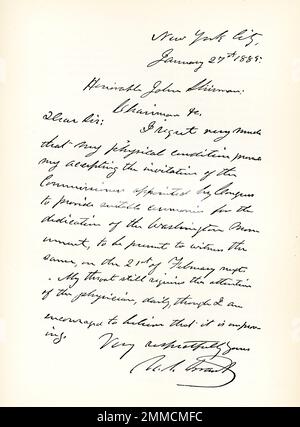 New York City,
January 27th 1885.
Honorable John Sherman.
Chairman &c.
Dear Sir:
I regret very much
that my physical condition prevents
my accepting the invitation of the
Commissioners appointed by Congress
to provide suitable ceremonies for the
dedication of the Washington Mon-
ument, to be present to witness the
same, on the 21st of February next
. My throat still requires the attention
of the physician, daily, though I am
encouraged to believe that it is improv-
ing.
Very respectfully yours
U. S. Grant
alamy
Image ID: 2MMCMFC
www.alamy.com